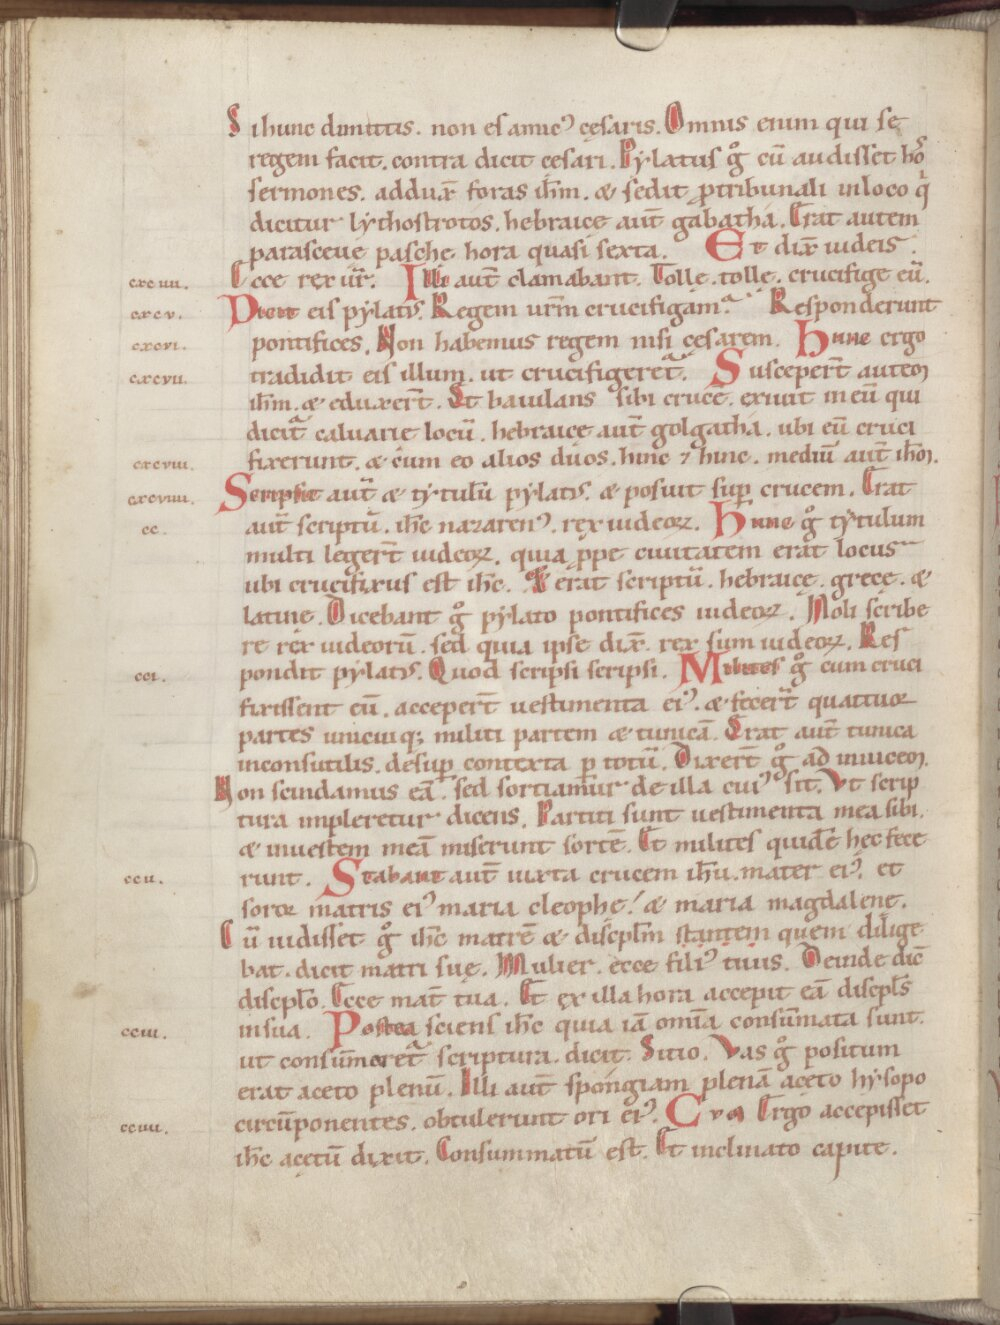 Si hunc dimittis. non es amic᾿ cęsaris. Omnis enim qui se
regem facit. contra dicit cęsari. Pylatus g̊ cū audisset hos̄
sermones. addux̄ foras ih̄m. & sedit ꝓtribunali in loco qͥ
dicitur lythostrotos. hebraice aut̄ gabatha. Erat autem
parasceue paschę hora quasi sexta. Et dix̄ iudeis.
cxciiii. Ecce rex ur̄. Illi aut̄ clamabant. Tolle. tolle. crucifige eū.
cxcv. Dicit eis pylat᾿. Regem ur̄m crucifigam? Responderunt
cxcvi. pontifices. Non habemus regem nisi cęsarem. Hunc ergo
cxcvii. tradidit eis illum. ut crucifigeret᷑. Suscepert̄ autem
ih̄m. & eduxert̄. Et baiulans sibi crucē. exiuit in eū qui
dicit᷑ caluarie locū. hebraicę aut̄ golgatha. ubi eū cruci
cxcviii. fixerunt. & cum eo alios duos. hinc ⁊ hinc. mediū aut̄ ih̄m.
cxcviiii. Scripsit aut̄ & tytulū pylat᾿. & posuit sup̱ crucem. Erat
cc. aut̄ scriptū. ih̄c nazaren᾿. rex iudeoꝝ. Hunc g̊ tytulum
multi legert̄ iudeoꝝ. quia ꝓpe ciuitatem erat locus
ubi crucifixus est ih̄c. & erat scriptū. hebraicę. grecę. &
latine. Dicebant g̊ pylato pontifices iudeoꝝ. Noli scribe
re rex iudeorū. sed quia ipse dix̄. rex sum iudeoꝝ. Res
cci. pondit pylat᾿. Quod scripsi scripsi. Milites g̊ cum cruci
fixissent eū. accepert̄ uestimenta ei᾿. & fecert̄ quattuor
partes unicuiqꝫ militi partem & tunicā. Erat aut̄ tunica
inconsutilis. desup̱ contexta p̱ totū. Dixert̄ g̊ ad inuicem.
Non scindamus eā. sed sortiamur de illa cui᾿ sit. Vt scrip
tura impleretur dicens. Partiti sunt uestimenta mea sibi.
& in uestem meā miserunt sortē. Et milites quidē hec fece
ccii. runt. Stabant aut̄ iuxta crucem ih̄u. mater ei᾿. et
soror matris ei᾿ maria cleophe. & maria magdalene.
Cū uidisset g̊ ih̄c matrē & discpl̄m stantem quem dilige
bat. dicit matri suę. Mulier. ecce fili᾿ tuus. Deinde dic̄
discpl̄o. Ecce mat̄ tua. Et ex illa hora accepit eā discpl̄s
cciii. in sua. Postea sciens ih̄c quia iā omīa consūmata sunt.
ut consūmaret᷑ scriptura. dicit. Sitio. Vas g̊ positum
erat aceto plenū. Illi aut̄ spongiam plenā aceto hysopo
cciiii. circūponentes. obtulerunt ori ei᾿. Cum Ergo accepisset
ih̄c acetū dixit. Consummatū est. Et inclinato capite.